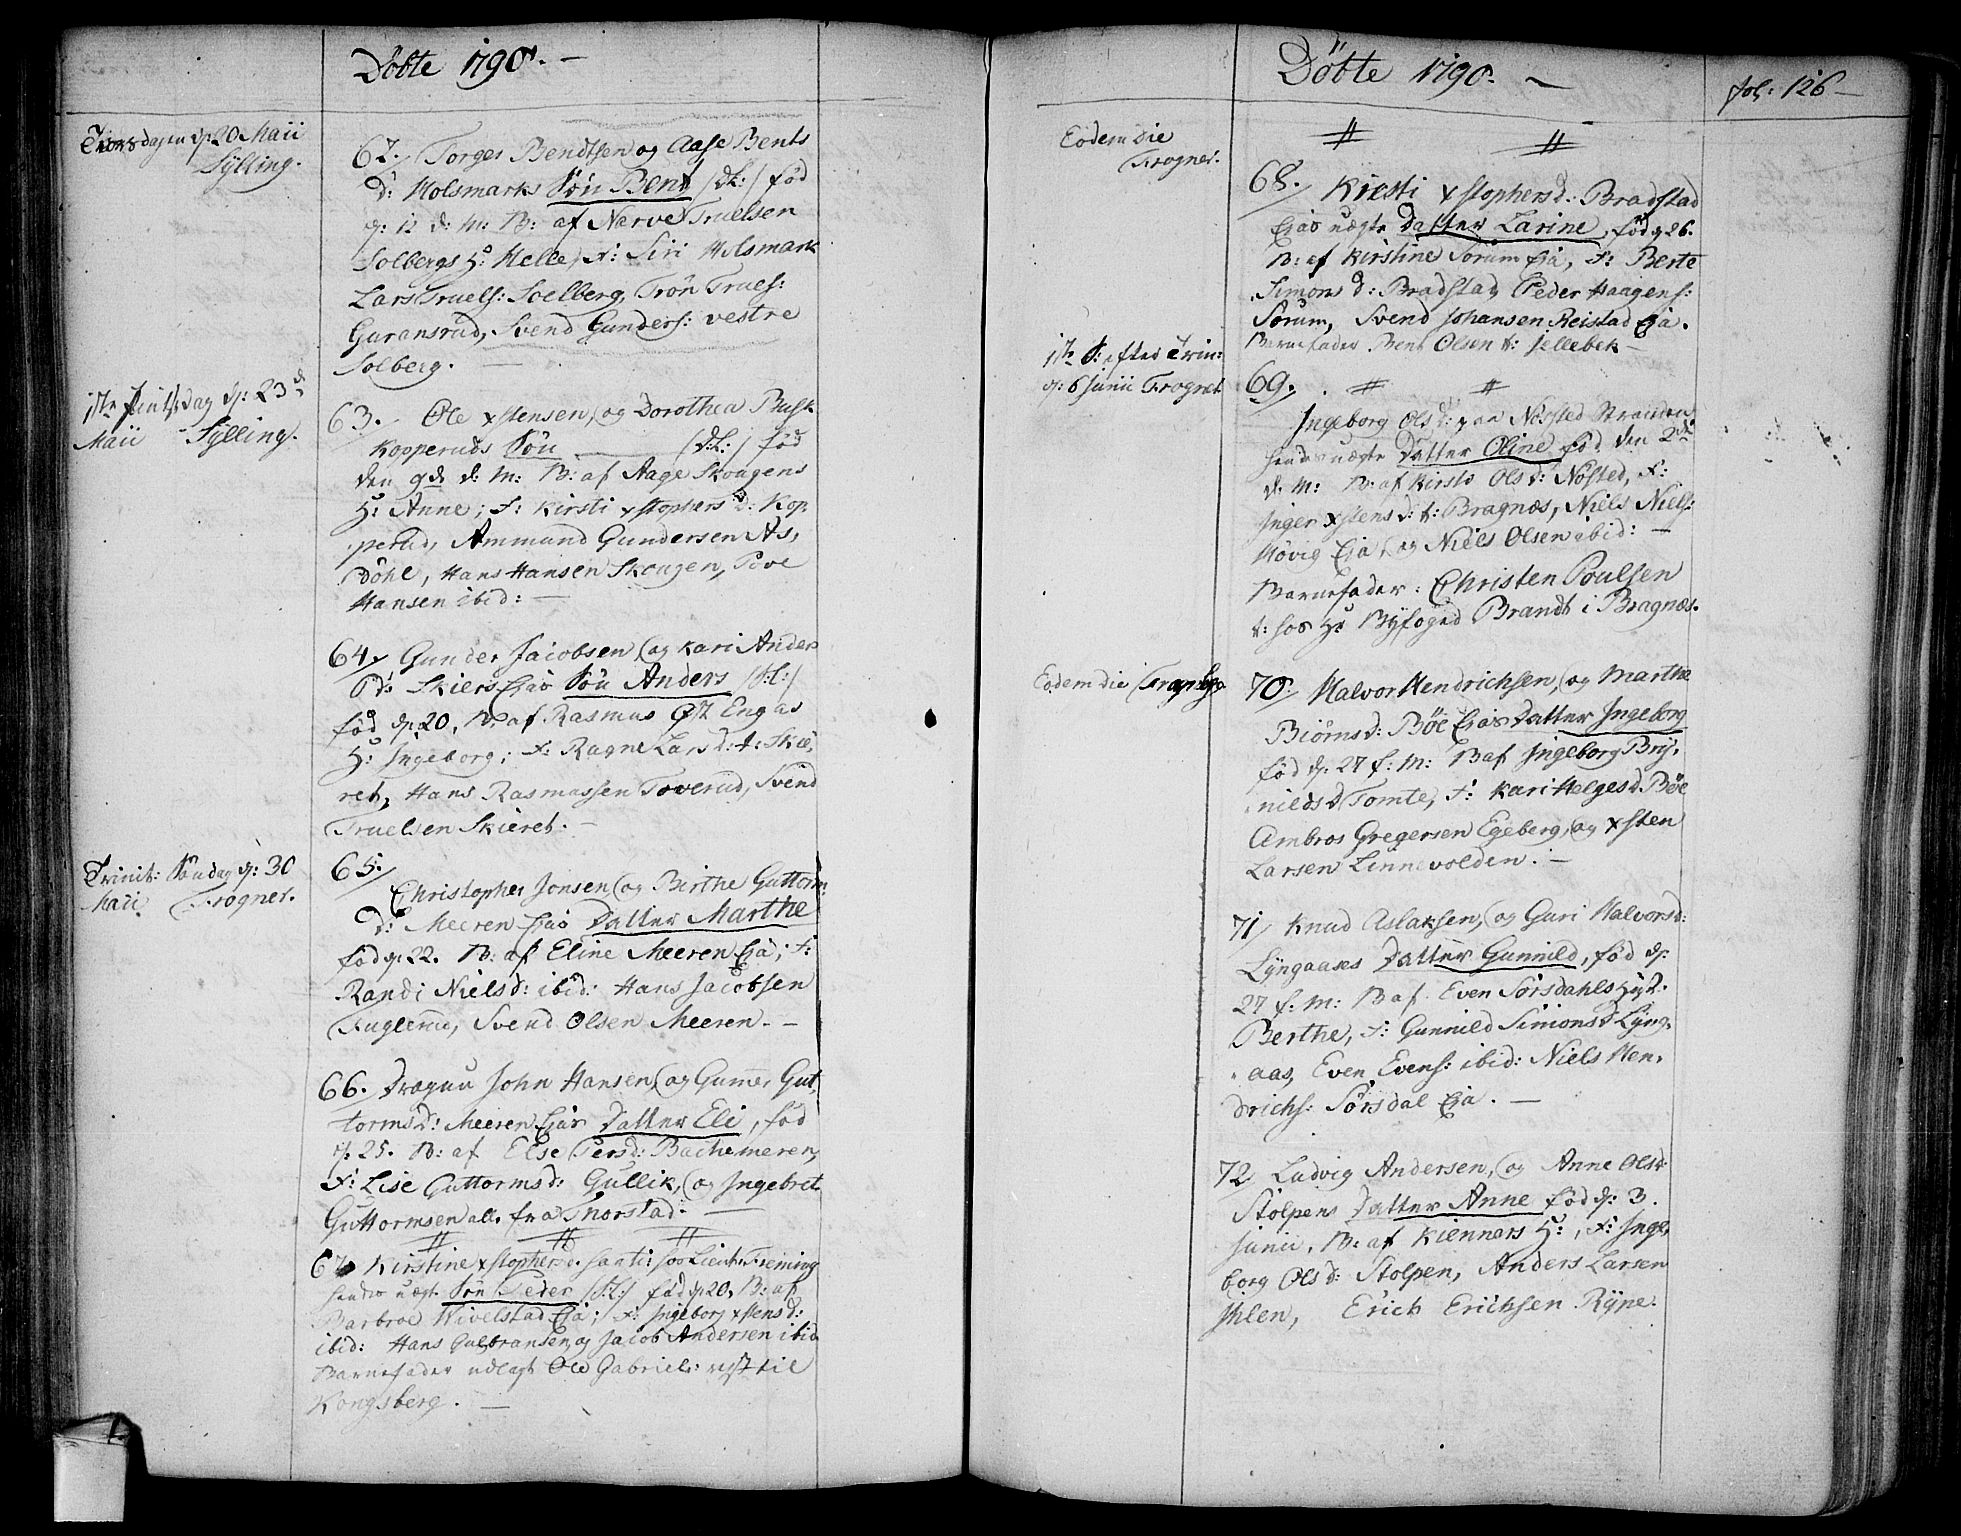 Döbte 1790. —
Torsdagen d: 20 Maii
Sylling.
62. Torges Bendtsen og Aase Bents
d: Holsmarks Søn Bent /dL:/ fød
d: 12 d: M: B: af Narve Truelsen
Solbergs H: Helle, F: Siri Holsmark
Lars Truels: Soelberg, Tron Truels:
Guransrud, Svend Gunders: vestre
Solberg. —
1ste Pintsdag d: 23de
Maii Sylling.
63. Ole xstensen, og Dorothea Busk
Kopperuds Søn — (dL:) fød
den 9de d: M: B: af Aage Skougens
H: Anne; F: Kirsti xstophers d: Kop
perud, Ammund Gundersen As,
Döhl, Hans Hansen Skougen, Pove
Hansen ibid: —
64. Gunder Jacobsen, og Kari Anders
d: Skiers Eja Søn Anders /dL:/
fød d: 20. B: af Rasmus Øst Engas
H: Ingeborg; F: Ragne Lars d: t: Skie,
ret, Hans Rasmussen Toverud, Svend
Truelsen Skieret. —
Trinit: Søndag d: 30
Maii Frogner.
65.
Christopher Jonsen, og Birthe Guttorm
d: Meeren Ejas Datter Marthe
fød d: 22. B: af Eline Meeren Eja; F:
Randi Niels d: ibid: Hans Jacobsen
Fuglerud, Svend Olsen Meeren. —
66. Dragun John Hansen, og Gunner Gut,
torms d: Meeren Ejas Datter Eli, fød
d: 25. B: af Else Pers d: Bachemeren,
F: Lise Guttorms d: Gullik, og Ingebret
Guttormsen alle fra Thorstad. —
67. Kirstine xstophers d. hos Lieut: Freming
hendes uægt Søn Peder /dL:/ fød d: 20. B: af
Barbroe Wivelstad Eja; F: Ingeborg xstens d:
ibid: Hans Gulbransen, og Jacob Andersen ibid
Barnefader udlagt Ole Gabriels: reyst til
Kongsberg. —
Döbte 1790. —
fol: 126 —
Eodem Die
Frogner.
68. Kirsti xstophers d: Bradstad
Ejas uægte Datter Larine, fød d: 26.
B: af Kirstine Sørum Eja, F: Berte
Simons d: Bradstad, Peder Haagens:
Sørum, Svend Johansen Reistad Eja.
Barnefader Bent Olsen t: Jellebek —
1ste S: efter Trin:
d: 6 Junii Frogner
69.
Ingeborg Ols d: paa Nøsted Stranden
hendes uægte Datter Oline fød den 2de
d: M: B: af Kirsti Ols d: Nøsted, F:
Inger xstens d: t: Bragnæs, Niels Niels:
Høvig Eja, og Niels Olsen ibid: —
Barnefader: Christen Poulsen
t: hos Hr Byfoged Brandt i Bragnæs.
Eodem Die Frogner
70. Halvor Hendrichsen, og Marthe
Biørns d: Bøe Ejas Datter Ingeborg
fød d: 27 f: M: B af Ingeborg Bry,
nilds d Tomte, F: Kari Helges d Bøe
Ambros Gregersen Egeberg, og xsten
Larsen Linnevolden. —
71 Knud Aslaksen, og Guri Halvors d:
Lyngaases Datter Gunnild, fød d:
27 f: M: B af Even Sørsdahls Hust.
Berthe, F: Gunnild Simons d Lyng,
aas, Even Evens: ibid: Niels Hen,
drichs: Sørsdal Eja. —
72 Ludvig Andersen, og Anne Ols d:
Stolpens Datter Anne fød d: 3.
Junii. B: af Kienners H:, F: Inge,
borg Ols d: Stolpen, Anders Larsen
Ihlen, Erich Erichsen Rype.